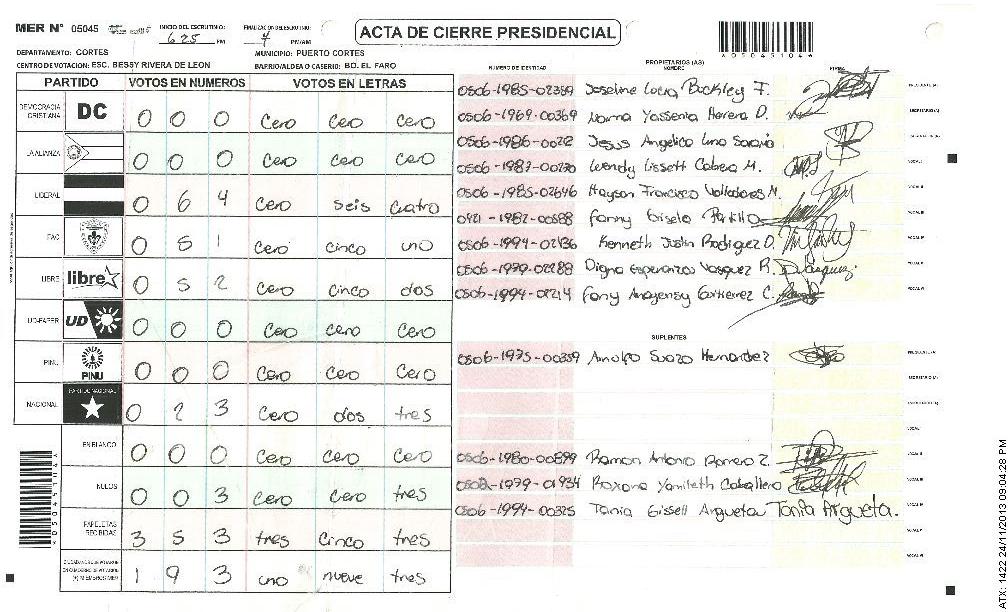 MER N° 05045 INICIO DEL ESCRUTINIO: 6:25 PM FINALIZACION ESCRUTINIO: 7 PM/AM
ACTA DE CIERRE PRESIDENCIAL
*05045104*
DEPARTAMENTO: CORTES MUNICIPIO: PUERTO CORTES
CENTRO DE VOTACION: ESC. BESSY RIVERA DE LEON BARRIO/ALDEA O CASERIO: BO. EL FARO
PARTIDO VOTOS EN NUMEROS VOTOS EN LETRAS
DEMOCRACIA CRISTIANA DC 0 0 0 cero cero cero
LA ALIANZA 0 0 0 cero cero cero
LIBERAL 0 6 4 cero seis cuatro
FAC 0 5 1 cero cinco uno
LIBRE libre 0 5 2 cero cinco dos
UD-FAPER UD 0 0 0 cero cero cero
PINU PINU 0 0 0 cero cero cero
NACIONAL PARTIDO NACIONAL 0 2 3 cero dos tres
EN BLANCO 0 0 0 cero cero cero
NULOS 0 0 3 cero cero tres
PAPELETAS RECIBIDAS 3 5 3 tres cinco tres
1 9 3 uno nueve tres
PROPIETARIOS (AS)
NUMERO DE IDENTIDAD NOMBRE FIRMA
0506-1985-02389 Joseline Buckley F.
0506-1969-00369 Norma Yassenia Herera D.
0506-1986-00212 Jesus Angelica
0506-1987-00270 Wendy Lissett M.
0506-1985-02646 Hayson Francisco Valladares M.
0421-1982-00588 Fanny Gisela
0506-1994-02436 Kenneth Justin Rodriguez D.
0506-1979-02288 Digna Esperanza Vasquez R.
0506-1994-02214 Fany Gutierrez C.
SUPLENTES
0506-1975-00359 Arnolfo Suazo Hernandez
0506-1980-00899 Ramon Antonio Romero Z.
1979-01934 Roxana Yamileth Caballero
0506-1994-00325 Tania Gissell Argueta Tania Argueta.
*05045104*
ATX: 1422 24/11/2013 09:04:28 PM